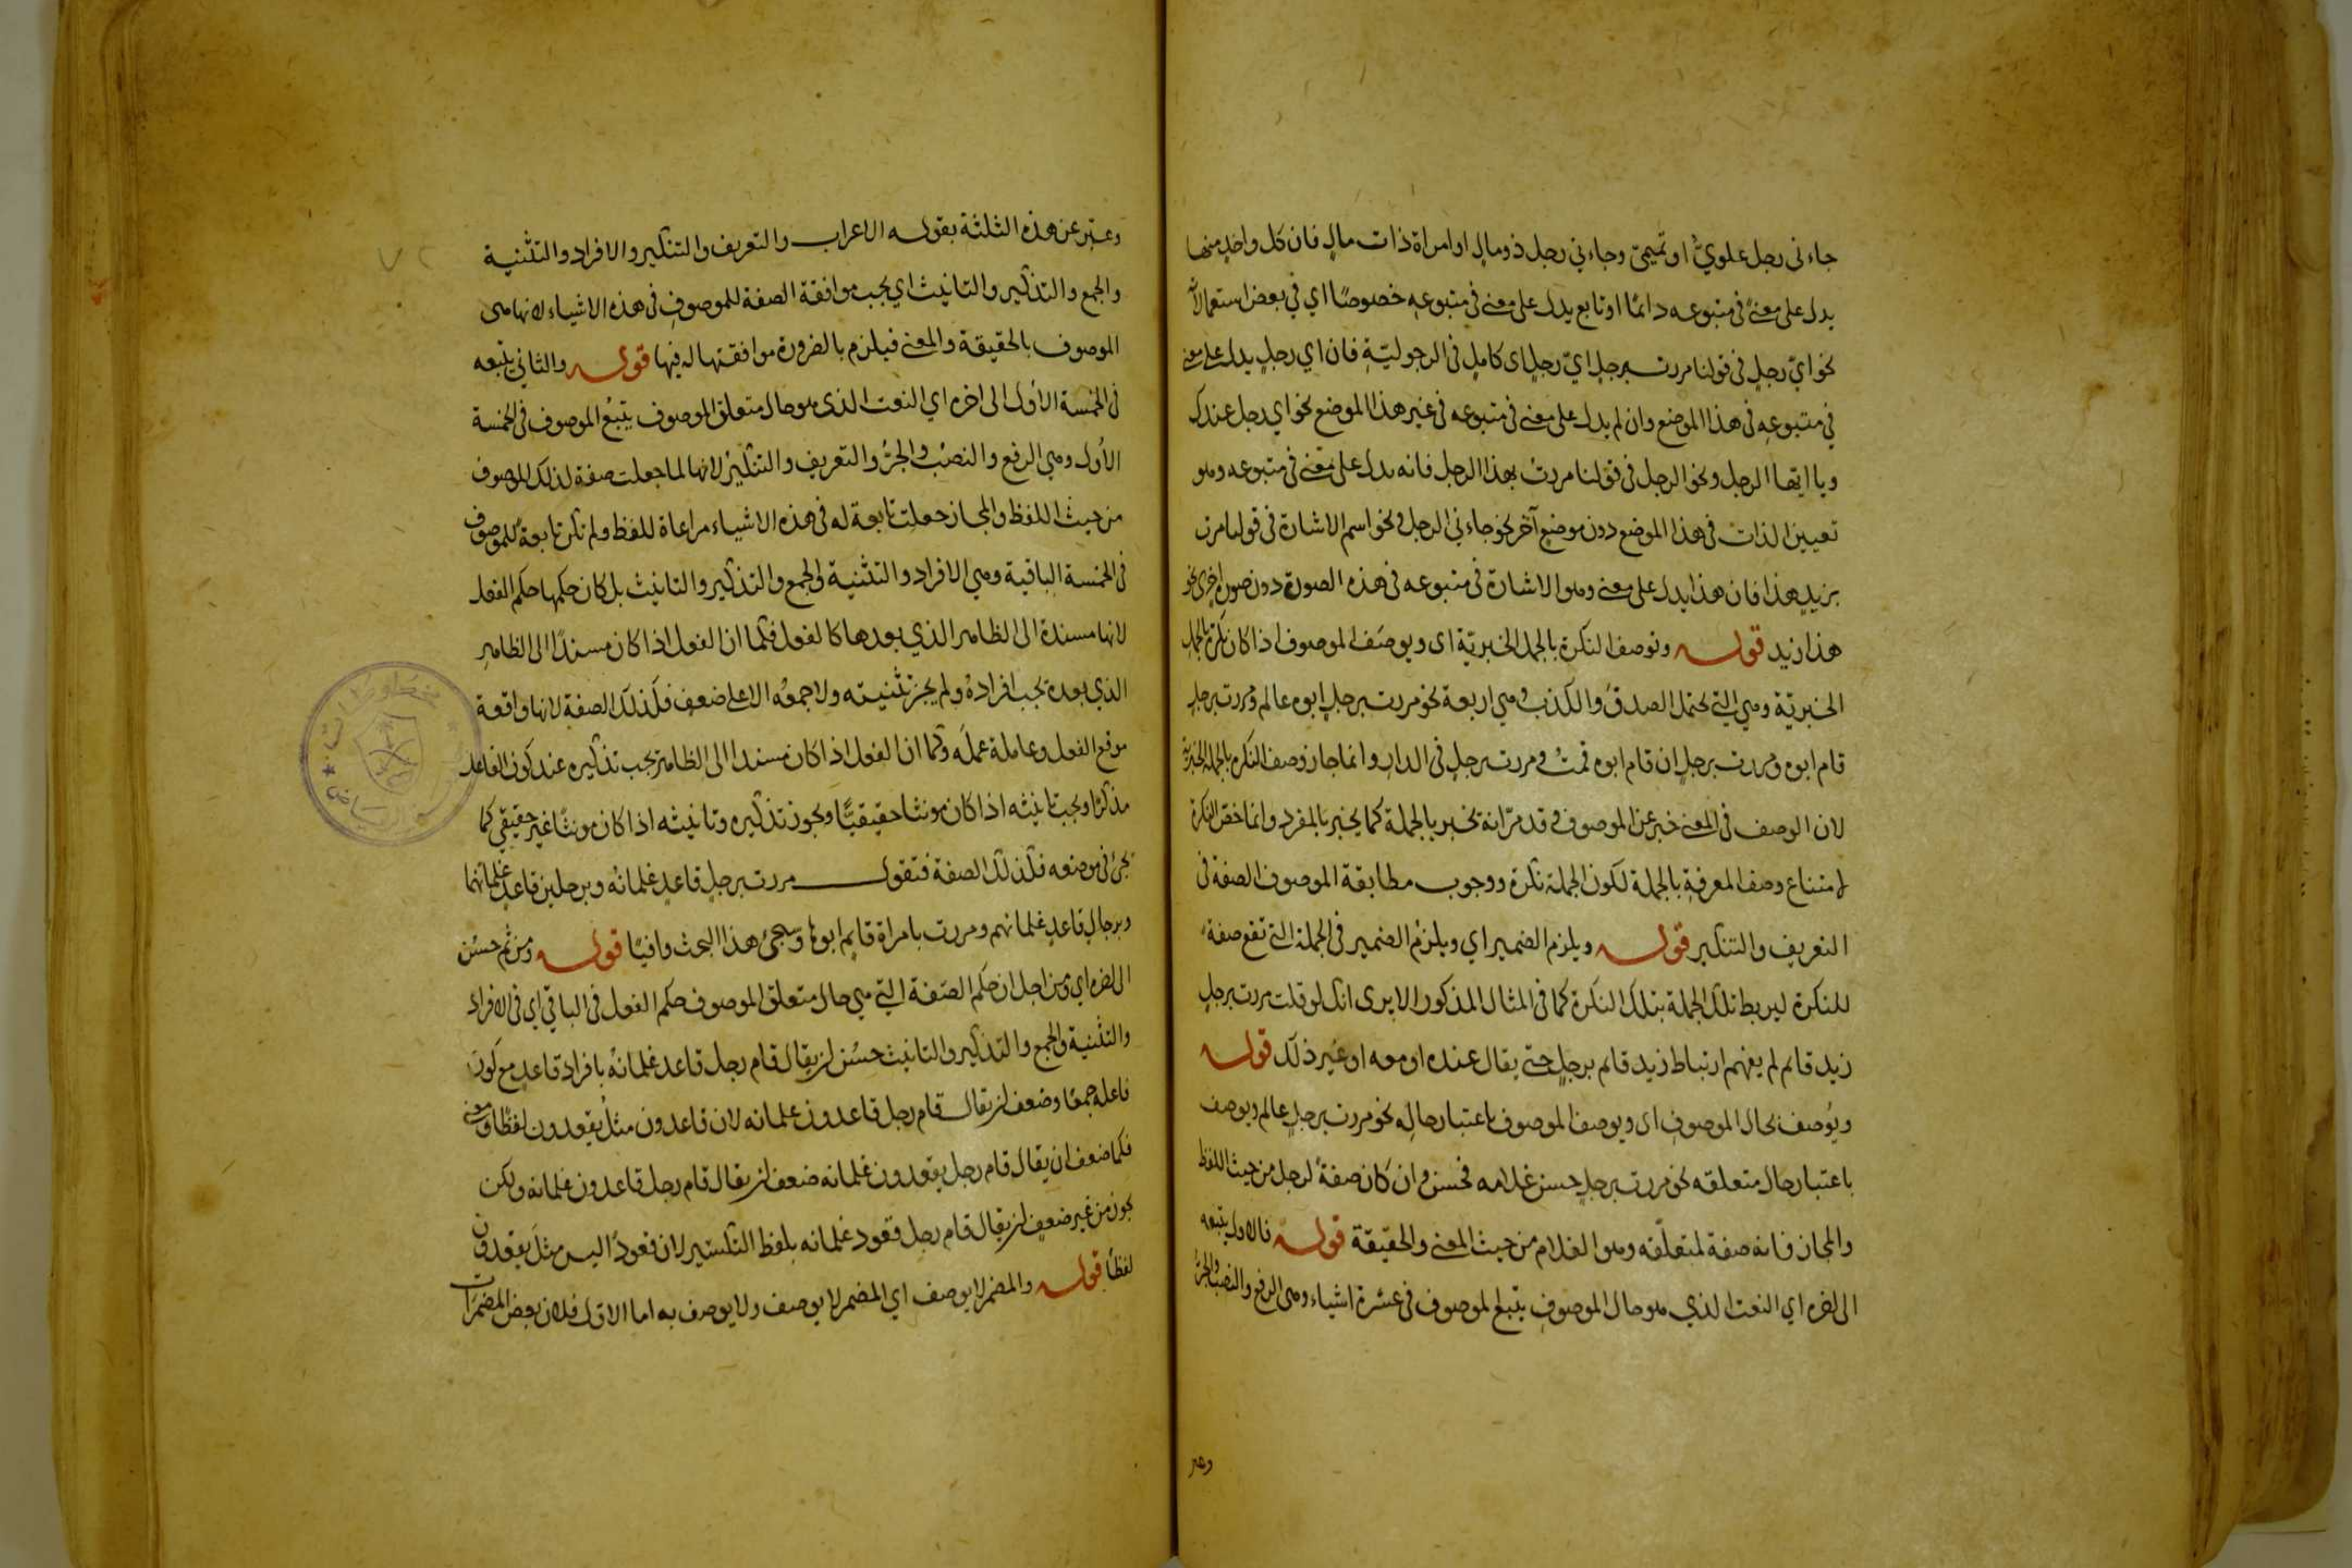 جاءنى رجل علويٌّ او تميمىّ وجاءنى رجل ذومالٍ او امراة ذات مالٍ فان كل واحدٍ منها
يدل على معنىً فى متبوعه دائمًا او تابع يدل على معنى فى متبوعهٖ خصوصًا اي في بعض استعمالاته
نحو ايّ رجلٍ فى قولنا مررت برجلٍ ايّ رجلٍ اى كاملٍ فى الرجوليّةِ فان اي رجلٍ يدل على معنى
في متبوعهٖ فى هذا الموضع وان لم يدل على معنى فى متبوعه فى غير هذا الموضع نحو اي رجل عندك
ويا ايّها الرجل ونحو الرجل فى قولنا مررتُ بهذا الرجل فانه يدل على معنى فى متبوعه وهو
تعيين الذات فى هذا الموضع دون موضعٍ آخر نحو جاءني الرجل ونحو اسم الاشارة فى قولنا مررت
بزيدٍ هذا فان هذا يدل على معنى وهو الاشارة فى متبوعه فى هذه الصورة دون صورة اخرى نحو
هذا زيد قوله وتوصف النكرة بالجمل الخبريّة اى ويوصَف الموصوف اذا كان نكرة بالجمل
الخبريّة وهي التي تحتمل الصدقَ والكذبَ وهي اربعة نحو مررت برجلٍ ابوه عالم ومررت برجلٍ
قام ابوه ومررت برجلٍ ان قام ابوه قمتُ ومررت برجلٍ فى الدار وانما جاز وصف النكرة بالجملة الخبرية
لان الوصف فى المعنى خبر عن الموصوف وقد مرّ انه تخبر بالجملة كما يخبر بالمفرد وانما خصّ النكرة
لامتناع وصف المعرفةِ بالجملة لكون الجملة نكرة ووجوب مطابقة الموصوف الصفة فى
التعريف والتنكير قوله ويلزم الضمير اي ويلزم الضمير فى الجملة التى تقع صفة
للنكرة ليربط تلك الجملة بتلك النكرة كما فى المثال المذكور الايرى انك لو قلت مررت برجلٍ
زيد قائم لم يفهم ارتباط زيد قائم برجلٍ حتى يقال عنده او معه او غير ذلك قوله
ويُوصف بحال الموصوفِ اى ويوصف الموصوف باعتبار حالِه نحو مررت برجلٍ عالم ويوصف
باعتبار حال متعلقه نحو مررت برجلٍ حسن غلامه فحسن وان كان صفةً لرجل من حيث اللفظ
والمجاز فانه صفة لمتعلّقه وهو الغلام من حيث المعنى والحقيقة قوله فالاول يتبعه
الى اخره اي النعت الذي هو حال الموصوفِ يتبع الموصوف فى عشرة اشياء وهى الرفع والنصب والجرّ
وعبر
وعبّر عن هذه الثلثة بقوله الاعراب والتعريف والتنكير والافراد والتثنية
والجمع والتذكير والتانيث اي يجب موافقة الصفة للموصوفِ فى هذه الاشياء لانها هى
الموصوف بالحقيقة والمعنى فيلزم بالضرورة موافقتها له فيها قوله والثاني يتبعه
فى الخمسة الاُول الى اخره اي النعت الذى هو حال متعلق الموصوف يتبع الموصوف فى الخمسة
الاُول وهي الرفع والنصبُ والجرّ والتعريف والتنكيرُ لانها لما جعلت صفة لذلك الموصوف
من حيث اللفظ والمجاز جعلت تابعة له فى هذه الاشياء مراعاة للفظ ولم تكن تابعة للموصوف
فى الخمسة الباقية وهي الافراد والتثنية والجمع والتذكير والتانيث بل كان حكمها حكم الفعل
لانها مسندة الى الظاهر الذي بعدها كالفعل فكما ان الفعل اذا كان مسندًا الى الظاهر
الذي بعده يجب افرادهُ ولم يجز تثنيته ولا جمعُه الا على ضعفٍ فكذلك الصفة لانها واقعة
موقع الفعل وعاملة عملَه وكما ان الفعل اذا كان مسندا الى الظاهر يجب تذكيره عند كون الفاعل
مذكرًا ويجب تانيثه اذا كان مونثا حقيقيًّا ويجوز تذكيره وتانيثه اذا كان مونثًا غير حقيقي كما
يجئ فى موضعه فكذلك الصفة فتقول مررت برجلٍ قاعدٍ غلمانُه وبرجلين قاعدٍ غلمانهما
وبرجالٍ قاعدٍ غلمانهم ومررت بامراة قايم ابوها وسيجئ هذا البحث وافيًا قوله ومن ثم حسُن
الى اخره اي ومن اجل ان حكم الصفة التي هي حال متعلق الموصوف حكم الفعل فى الباقي اي فى الافراد
والتثنية والجمع والتذكير والتانيث حسُن ان يقال قام رجل قاعد غلمانُهُ بافراد قاعدٍ مع كون
فاعله جمعًا وضعف ان يقال قام رجل قاعدون غلمانه لان قاعدون مثلُ يقعدون لفظًا ومعنى
فكما ضعف ان يقال قام رجل يقعدون غلمانه ضعف ان يقال قام رجل قاعدون غلمانه ولكن
يجوز من غير ضعفٍ ان يقال قام رجل قعود غلمانه بلفظ التكسير لان قعودًا ليس مثلَ يقعدون
لفظًا قوله والمضمر لا يوصف اي المضمر لا يوصف ولا يوصف به اما الاول فلان بعض المضمرات